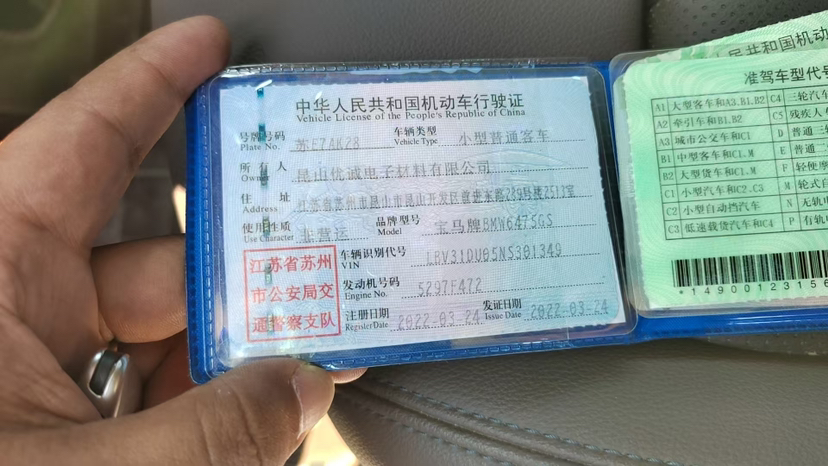 中华人民共和国机动车行驶证
Vehicle License of the People's Republic of China
号牌号码 苏E7AK28 车辆类型 小型普通客车
Plate No. Vehicle Type
所有人 昆山优诚电子材料有限公司
Owner
住址 江苏省苏州市昆山市昆山开发区前进东路289号楼2513室
Address
使用性质 非营运 品牌型号 宝马牌BMW6475GS
Use Character Model
车辆识别代号 LBV31DU05NS301349
VIN
发动机号码 5297F472
Engine No.
注册日期 2022-03-24 发证日期 2022-03-24
Register Date Issue Date
江苏省苏州
市公安局交
通警察支队
民共和国机动
准驾车型代号
A1 大型客车和A3.B1.B2 C4 三轮汽车
A2 牵引车和B1.B2 C5 残疾人
A3 城市公交车和C1 D 普通三
B1 中型客车和C1.M E 普通二
B2 大型货车和C1.M F 轻便摩
C1 小型汽车和C2.C3 M 轮式自
C2 小型自动挡汽车 N 无轨电
C3 低速载货汽车和C4 P 有轨
*14900123156